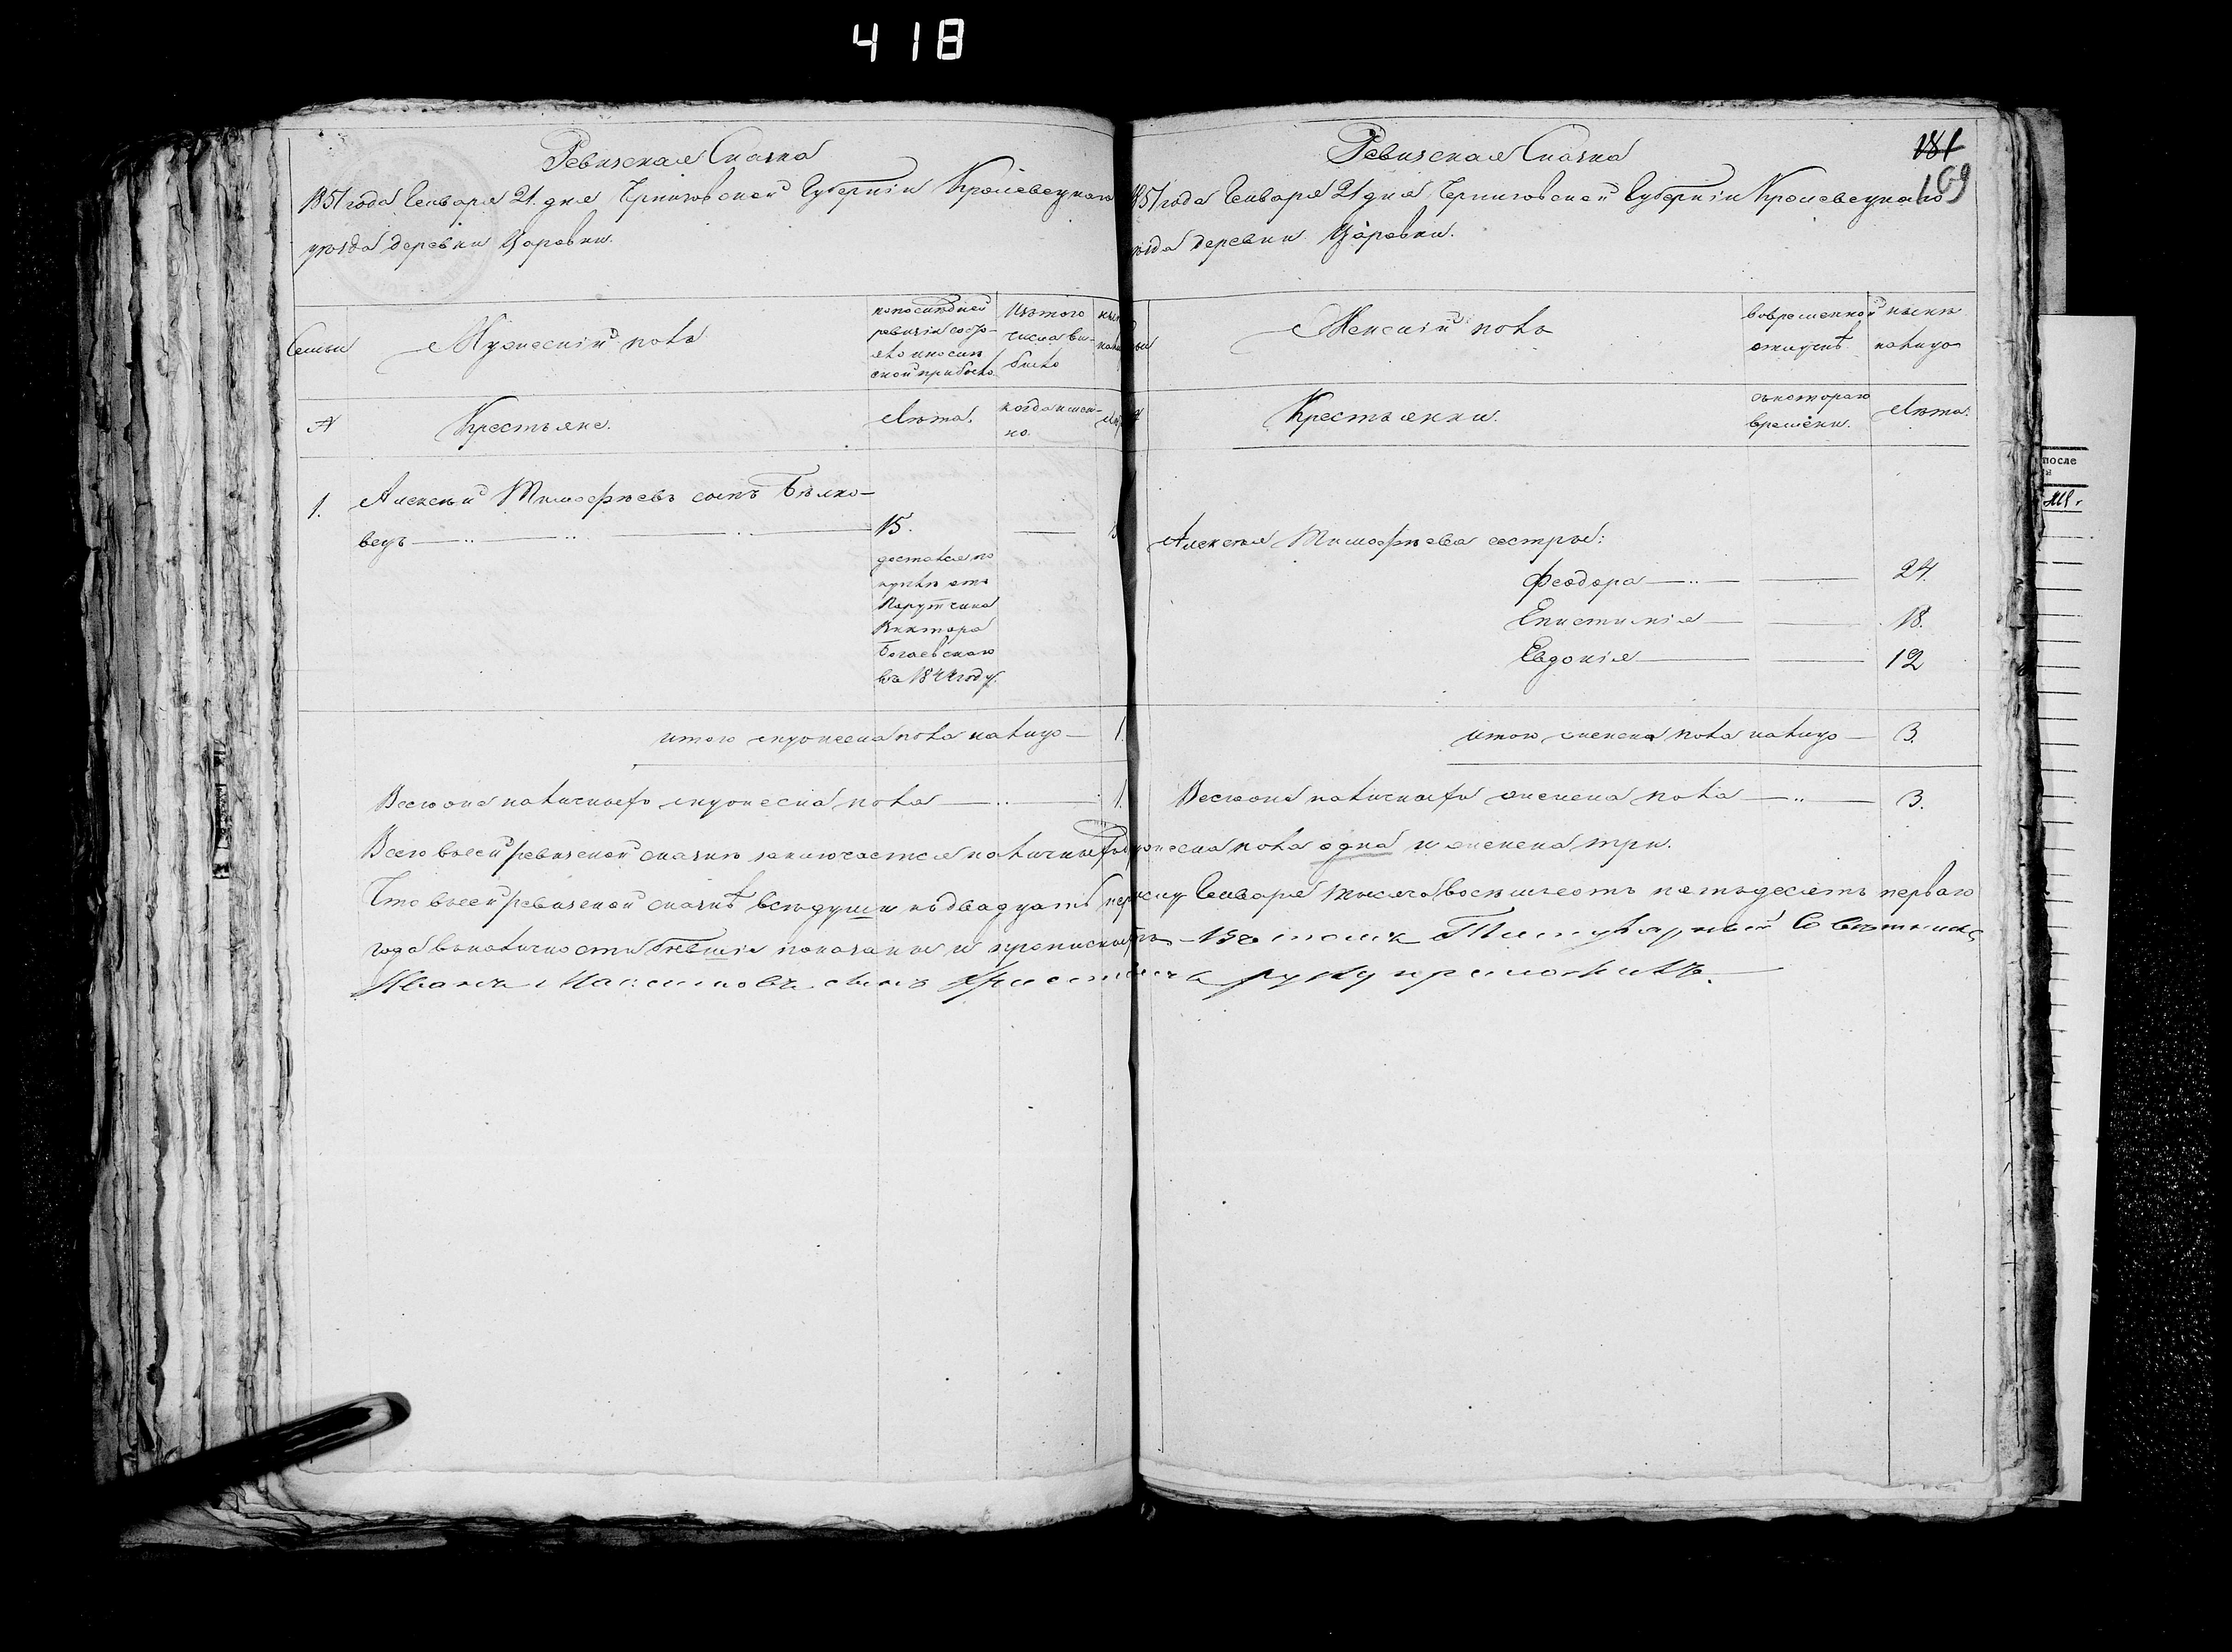 418
Ревизская Сказка
1851 года Генваря 21. дня Черниговской Губернии Кролевецкаго
уезда деревни Царовки.
Семьи
Мужеский полъ
по последней
ревизіи состо-
яло и после
оной прибыло
Изъ того
числа вы-
было
№
Крестьяне.
Лѣта.
когда имен-
но.
1.
Алексѣй Тимофѣевъ сынъ Бѣлко-
вецъ
15.
достался по
купли отъ
Порутчика
Виктора
Богаевскаго
въ 1844 году.
итого мужеска пола налицо — 1.
Всего оне наличнаго мужеска пола — 1.
Ревизская Сказка
181
169
1851 года Генваря 21 дня Черниговской Губерніи Кролевецкаго
уезда деревни Царовки.
Женский полъ
во временной
отлучкѣ
нынѣ
налицо
Крестьянки.
съ котораго
времени.
Лѣта.
Алексѣя Тимофѣева сестры:
Феодора — 24.
Епистимія — 18.
Евдокія — 12
итого женска пола налицо — 3.
Всего оне наличнаго женска пола — 3.
Всего в сей ревизской сказкѣ заключается наличнаго мужеска пола одна и женска три.
Что в сей ревизской сказкѣ все души къ двадцать первому Генваря тысяча восемьсотъ пятьдесятъ перваго
года в наличности бывшія показаны и прописныхъ нѣтъ Титулярный Советникъ
Иванъ Максимовъ сынъ руку приложилъ.
после